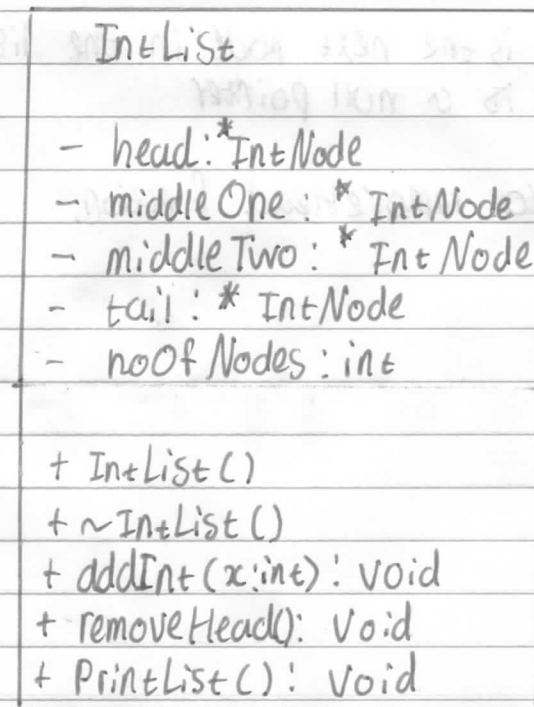 IntList
- head: *IntNode
- middleOne: * IntNode
- middleTwo: * IntNode
- tail: * IntNode
- noOfNodes: int
+ IntList()
+ ~IntList()
+ addInt(x:int): void
+ removeHead(): Void
+ PrintList(): Void